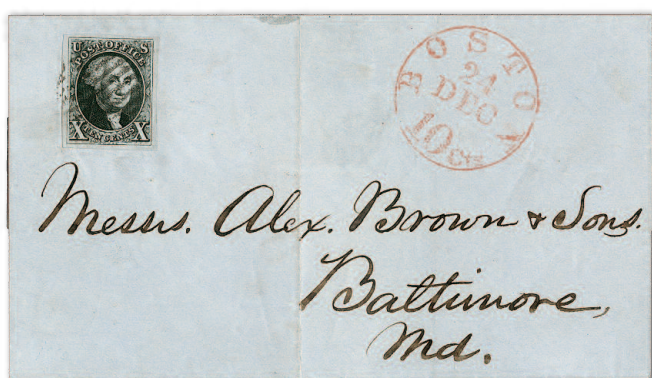 U S
POST OFFICE
X TEN CENTS X
BOSTON
24
DEC
10 cts
Messrs. Alex. Brown & Sons.
Baltimore,
Md.